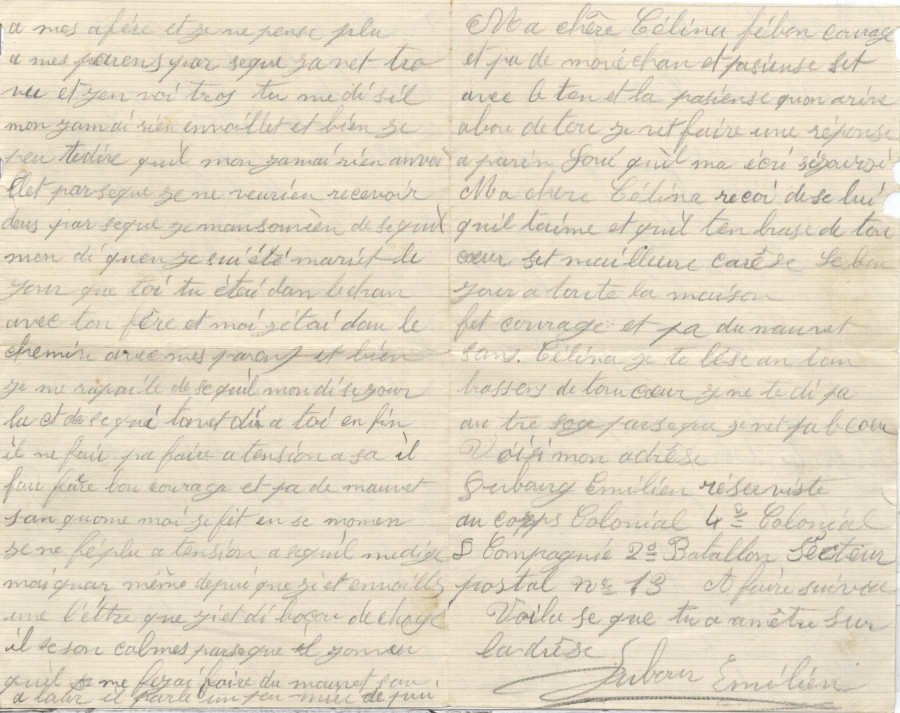 a mes afére et je ne pense plu
a mes parens par seque ja net tro
vu et jen voi trop tu me di sil
mon jamai rien envoillet et bien je
peu te dire quil mon jamai rien anvoi
llet par seque je ne veu rien recevoir
deus par seque je man souvièn de se quil
mon di quen je sui été mariet le
jour que toi tu étai dan le chan
avec ton fére et moi jétai dan le
chemin avec mes parens et bien
je me rapaile de se quil mon di se jour
la et de se qui ton et di a toi en fin
il ne fau pa faire a tension a sa il
fau faire bon courage et pa de mauvet
san quome moi se fèt en se momen
je ne fé plu a tension a se quil me dise
mai quar même depui que ji et envoillé
une léttre que ji et di bocou de choje
il se son calmes parseque il jonven
quil me ferai faire du mauvet san
a lair il parle un peu mieu depui
Ma chère Célina fé bon courage
et pa de mové chan et pasiense set
avec le ten et la pasiense quon arive
a bou de tou je vet faire une réponse
a parin Loui quil ma écri
Ma chère Célina recoi de se lui
quil taime et quil tenbrase de tou
cœur set meilleure carêse le bon
jour a toute la maison
fet courage et pa du mauvet
san. Célina je te lése an tan
brassens de tou cœur je ne te di pa
au tre soge parseque je net pa becou
Voisi mon adrèse
Dubourg Emilien réserviste
au corps Colonial 4º Colonial
8 Compagnie 2º Batallon Sécteur
postal nº 13 A faire suivre
Voila se que tu a amêtre sur
ladrèse
Dubour Emilien